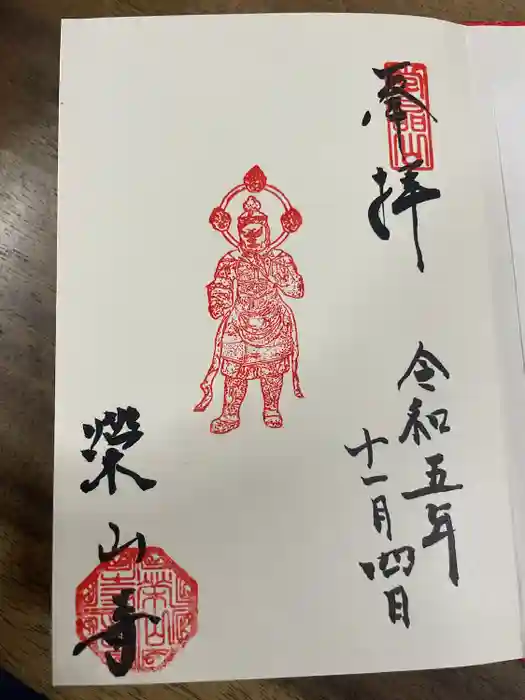 奉拝
令和五年
十一月四日
榮山寺